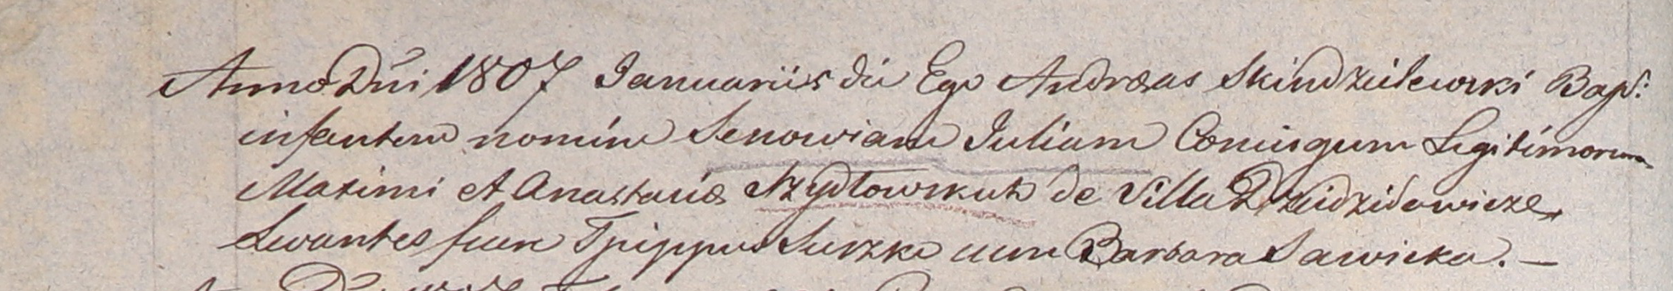 Anno Dni 1807 Januariis die Ego Andreas Skindzielewski Bapt:
infantem nomine Senowiam Juliam Coniugum Legitimorum
Maximi et Anastasiæ Szydłowskich de Villa Dziedzidowicze
Levantes fuere Sawicka. —